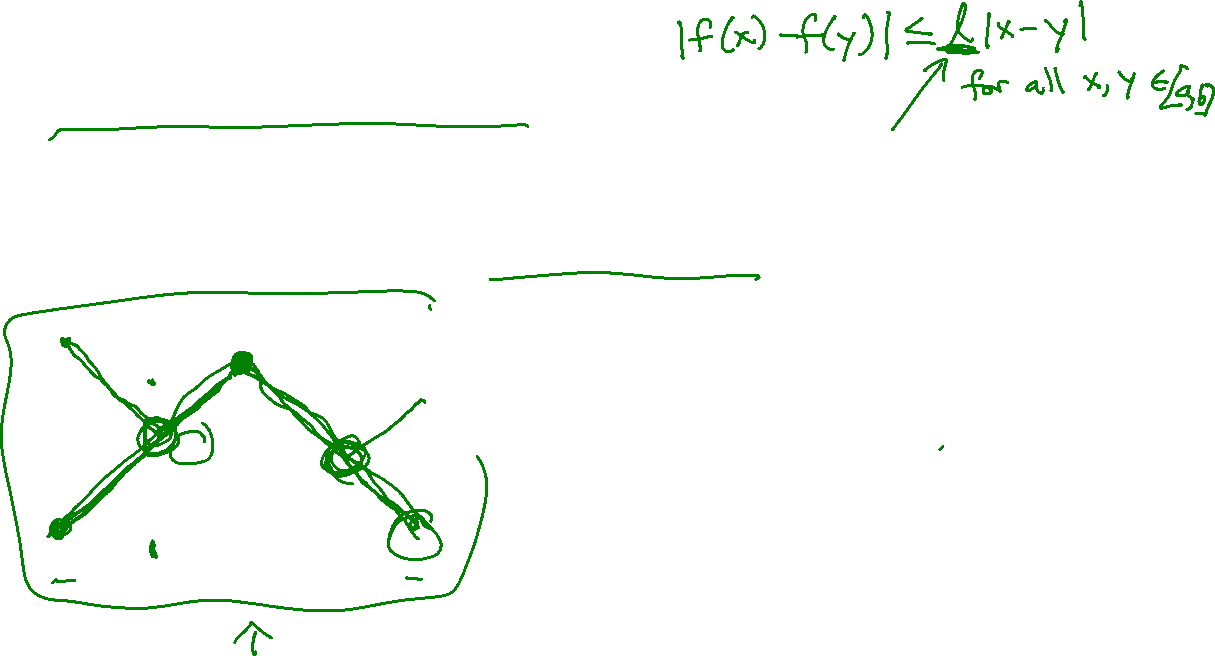 |f(x) - f(y)| ≤ L |x - y|
for all x, y ∈ [a,b]